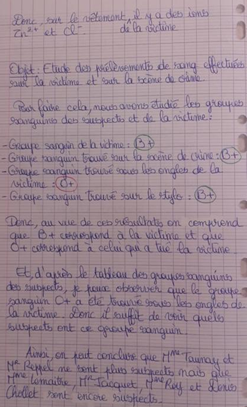 Donc, sur le vêtement, il y a des ions
Zn²⁺ et Cl⁻ de la victime
Objet : Etude des prélèvements de sang effectués
sur la victime et sur la scène de crime.
Pour faire cela, nous avons étudié les groupes
sanguins des suspects et de la victime :
- Groupe sanguin de la victime : B+
- Groupe sanguin trouvé sur la scène de crime : B+
- Groupe sanguin trouvé sous les ongles de la
victime : O+
- Groupe sanguin trouvé sur le stylo : B+
Donc, au vue de ces résultats on comprend
que B+ correspond à la victime et que
O+ correspond à celui qui a tué la victime.
Et, d'après le tableau des groupes sanguins
des suspects, je peux observer que le groupe
sanguin O+ a été trouvé sous les ongles de
la victime. Donc il suffit de voir quels
suspects ont ce groupe sanguin.
Ainsi, on peut conclure que Mme Taunay et
Mr Rappel ne sont plus suspects mais que
Mme Lemaitre, Mr Jacquet, Mme Roy et
Chollet sont encore suspects.